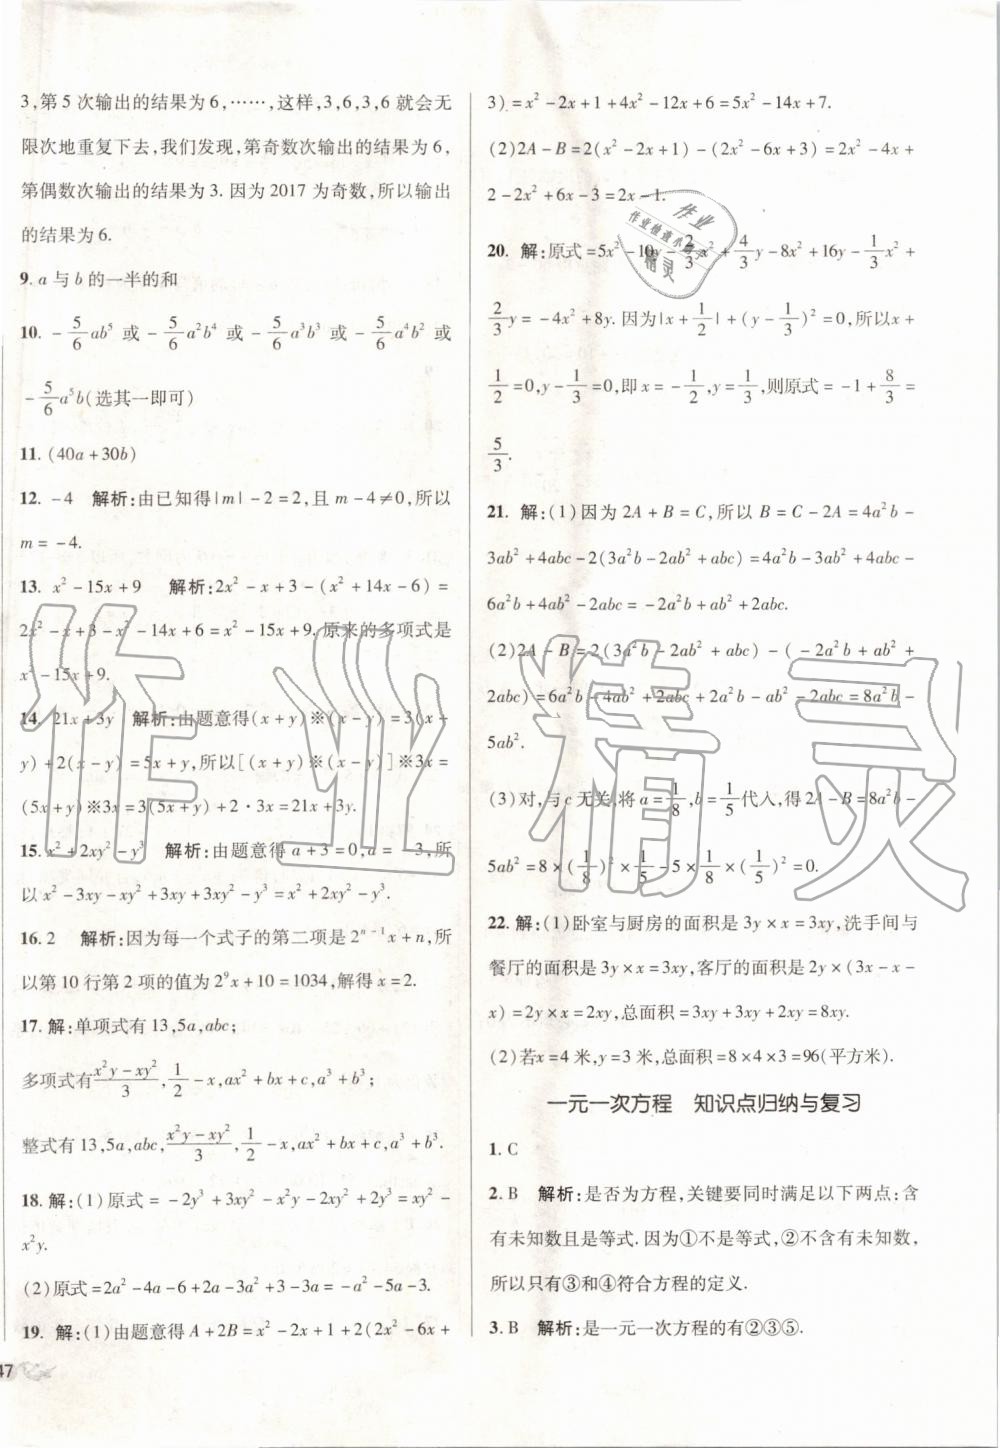 3,第5次输出的结果为6,……,这样,3,6,3,6就会无
限次地重复下去,我们发现,第奇数次输出的结果为6,
第偶数次输出的结果为3.因为2017为奇数,所以输出
的结果为6.
9. a与b的一半的和
10. -5/6 ab⁵ 或 -5/6 a²b⁴ 或 -5/6 a³b³ 或 -5/6 a⁴b² 或
-5/6 a⁵b(选其一即可)
11. (40a+30b)
12. -4 解析:由已知得|m|-2=2,且m-4≠0,所以
m=-4.
13. x²-15x+9 解析:2x²-x+3-(x²+14x-6)=
2x²-x+3-x²-14x+6=x²-15x+9.原来的多项式是
x²-15x+9.
14. 21x+3y 解析:由题意得(x+y)※(x-y)=3(x+
y)+2(x-y)=5x+y,所以[(x+y)※(x-y)]※3x=
(5x+y)※3x=3(5x+y)+2·3x=21x+3y.
15. x²+2xy²-y³ 解析:由题意得a+3=0,a=-3,所
以x²-3xy-xy²+3xy+3xy²-y³=x²+2xy²-y³.
16. 2 解析:因为每一个式子的第二项是2ⁿ⁻¹x+n,所
以第10行第2项的值为2⁹x+10=1034,解得x=2.
17. 解:单项式有13,5a,abc;
多项式有(x²y-xy²)/3,1/2-x,ax²+bx+c,a³+b³;
整式有13,5a,abc,(x²y-xy²)/3,1/2-x,ax²+bx+c,a³+b³.
18. 解:(1)原式=-2y³+3xy²-x²y-2xy²+2y³=xy²-
x²y.
(2)原式=2a²-4a-6+2a-3a²+3-3a=-a²-5a-3.
19. 解:(1)由题意得A+2B=x²-2x+1+2(2x²-6x+
47
3)=x²-2x+1+4x²-12x+6=5x²-14x+7.
(2)2A-B=2(x²-2x+1)-(2x²-6x+3)=2x²-4x+
2-2x²+6x-3=2x-1.
20. 解:原式=5x²-10y-2/3 x²+4/3 y-8x²+16y-1/3 x²+
2/3 y=-4x²+8y.因为|x+1/2|+(y-1/3)²=0,所以x+
1/2=0,y-1/3=0,即x=-1/2,y=1/3,则原式=-1+8/3=
5/3.
21. 解:(1)因为2A+B=C,所以B=C-2A=4a²b-
3ab²+4abc-2(3a²b-2ab²+abc)=4a²b-3ab²+4abc-
6a²b+4ab²-2abc=-2a²b+ab²+2abc.
(2)2A-B=2(3a²b-2ab²+abc)-(-2a²b+ab²+
2abc)=6a²b-4ab²+2abc+2a²b-ab²-2abc=8a²b-
5ab².
(3)对,与c无关,将a=1/8,b=1/5代入,得2A-B=8a²b-
5ab²=8×(1/8)²×1/5-5×1/8×(1/5)²=0.
22. 解:(1)卧室与厨房的面积是3y×x=3xy,洗手间与
餐厅的面积是3y×x=3xy,客厅的面积是2y×(3x-x-
x)=2y×x=2xy,总面积=3xy+3xy+2xy=8xy.
(2)若x=4米,y=3米,总面积=8×4×3=96(平方米).
一元一次方程 知识点归纳与复习
1. C
2. B 解析:是否为方程,关键要同时满足以下两点:含
有未知数且是等式.因为①不是等式,②不含有未知数,
所以只有③和④符合方程的定义.
3. B 解析:是一元一次方程的有②③⑤.
作业精灵
作业
作业检查小助手
精灵